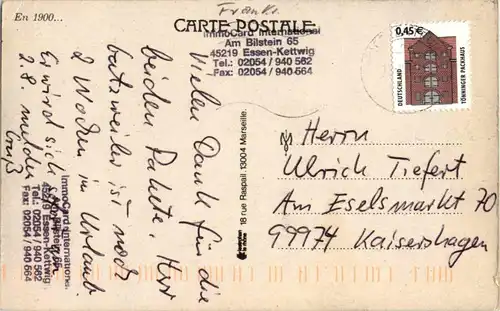 En 1900...
CARTE POSTALE
Frankr.
ImmoCard International
Am Bilstein 65
45219 Essen-Kettwig
Tel.: 02054 / 940 562
Fax: 02054 / 940 564
0,45 €
DEUTSCHLAND
TÖNNINGER PACKHAUS
Vielen Dank für die
beiden Pakete. Herr
ist noch
2 Wochen in Urlaub.
Er wird sich
2.8. melden
Gruß
ImmoCard International
Am Bilstein 65
45219 Essen-Kettwig
Tel.: 02054 / 940 562
Fax: 02054 / 940 564
18 rue Raspail. 13004 Marseille.
Herrn
Ulrich Tiefert
Am Eselsmarkt 70
99974 Kaisershagen